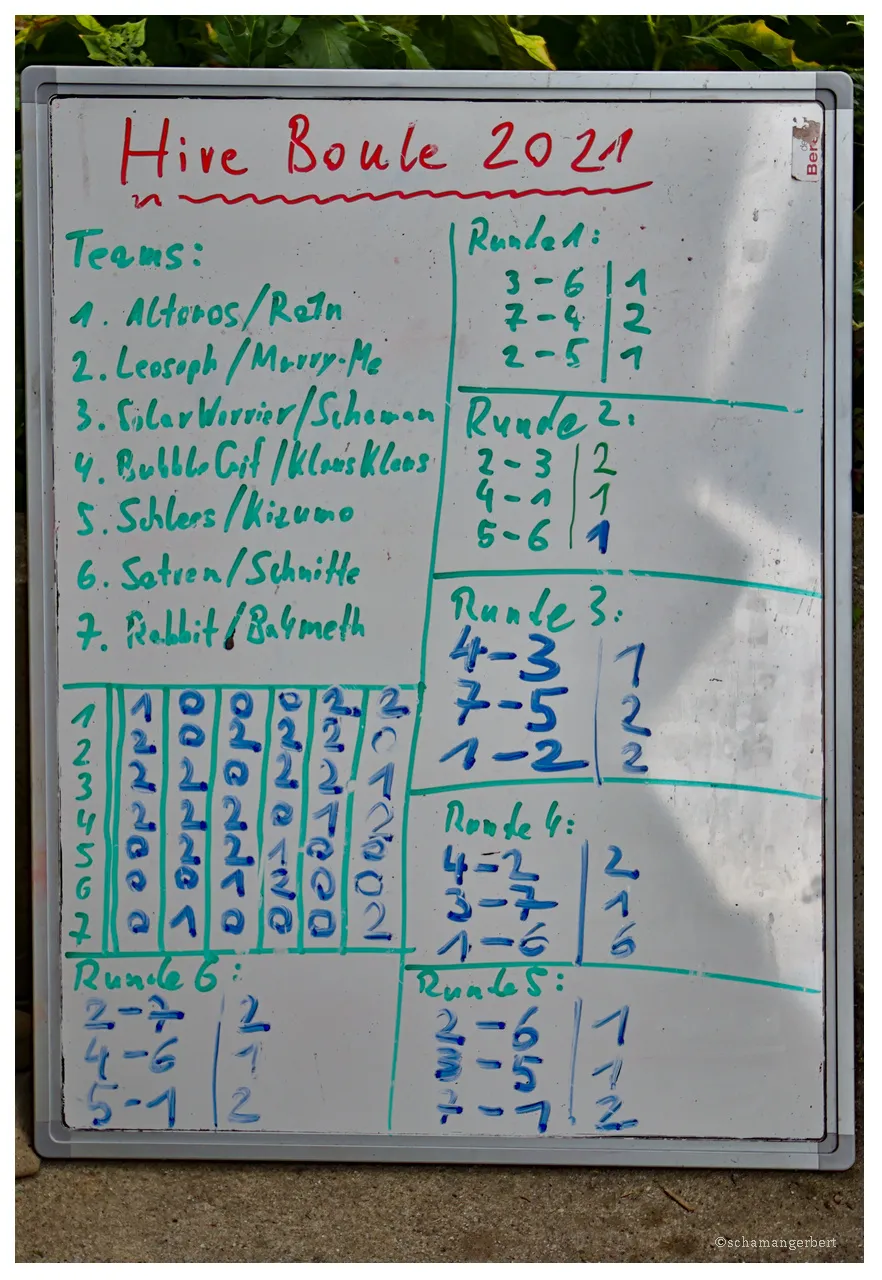 Hive Boule 2021
Teams:
1. Altoros/Re1n
2. Leosoph/Murry-Me
3. SolarWarrior/Schaman
4. BubbleGif/KlausKlaus
5. Schlees/Kizumo
6. Satren/Schnitte
7. Rabbit/Ba4meth
Runde 1:
3-6 | 1
7-4 | 2
2-5 | 1
Runde 2:
2-3 | 2
4-1 | 1
5-6 | 1
Runde 3:
4-3 | 1
7-5 | 2
1-2 | 2
1 1 0 0 0 2 2
2 2 0 2 2 2 0
3 2 2 0 2 2 1
4 2 2 2 0 1 2
5 0 2 2 1 0 0
6 0 0 1 2 0 0
7 0 1 0 0 0 2
Runde 4:
4-2 | 2
3-7 | 1
1-6 | 6
Runde 6:
2-7 | 2
4-6 | 1
5-1 | 2
Runde 5:
2-6 | 1
3-5 | 1
7-1 | 2
Bere
©schamangerbert